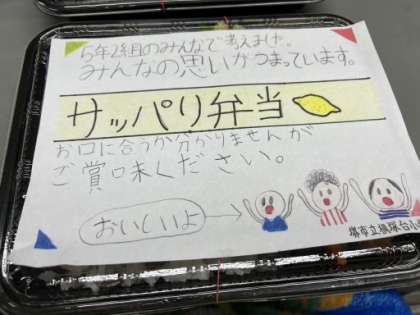 5年2組のみんなで考えました。
みんなの思いがつまっています。
サッパリ弁当
お口に合うか分かりませんが
ご賞味ください。
おいしいよ
堺市立